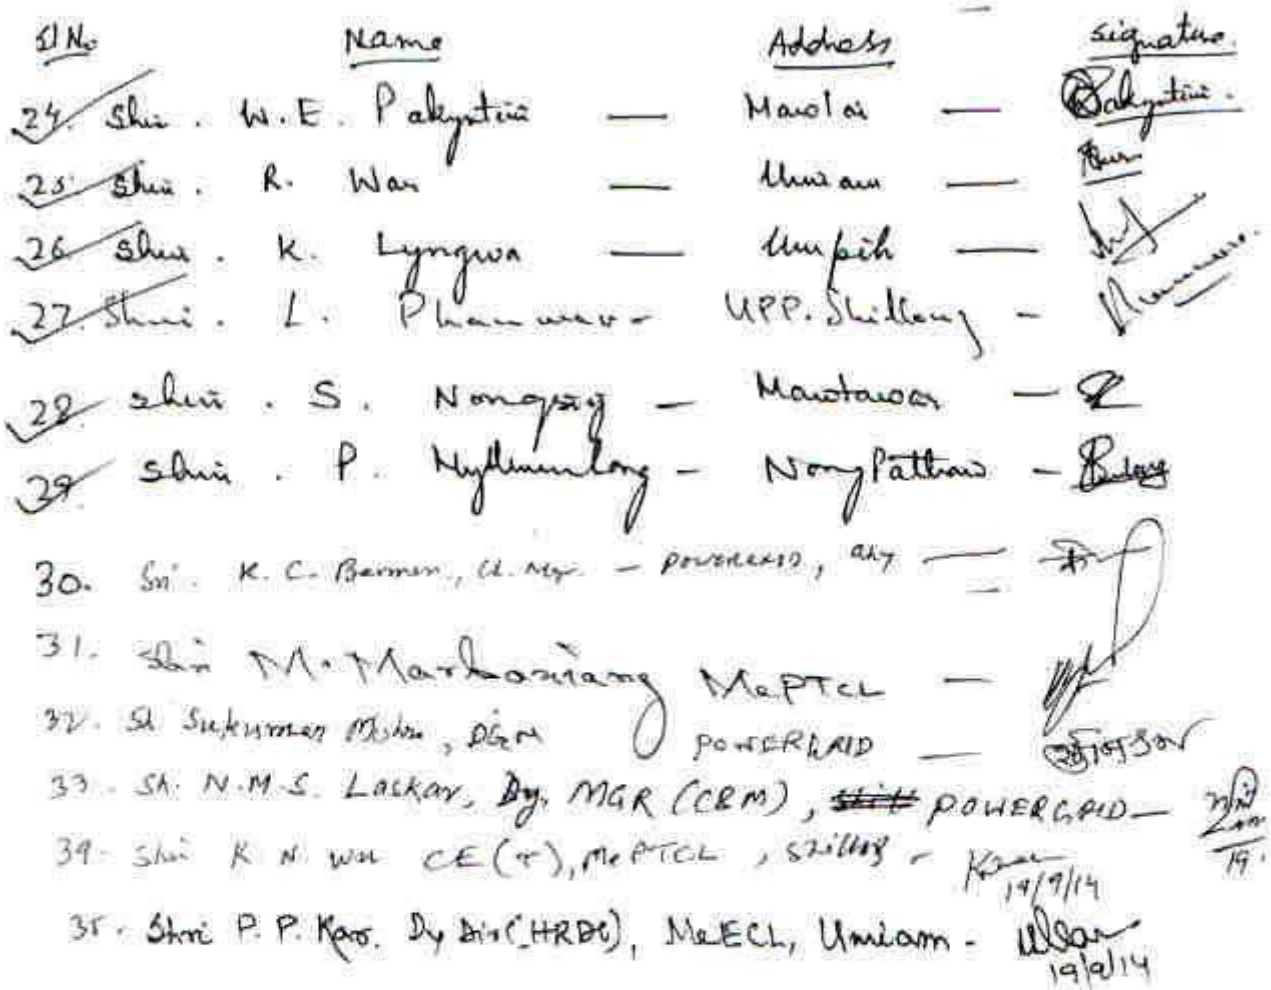 Sl No Name Address Signature.
24. Shri. W.E. Pakyntein — Mawlai — Pakyntein.
25. Shri. R. War — Umiam —
26. Shri. K. Lyngwa — Umpih —
27. Shri. L. Phanwar - UPP. Shillong -
28. Shri. S. Nongsiej — Mawtawar —
29. Shri. P. Nylliemlong - NongPathaw -
30. Sri. K. C. Barman, Ch. Mgr. - POWERGRID, Ghy —
31. Shri M. Marbaniang MePTCL —
32. Sh Sukumar Mishra, DGM POWERGRID —
33. Sh. N.M.S. Laskar, Dy. MGR (CRM), POWERGRID —
34. Shri K N War CE(T), MePTCL, Shillong -
19/9/14
35. Shri P. P. Kar. Dy Dir (HRDC), MeECL, Umiam -
19/9/14